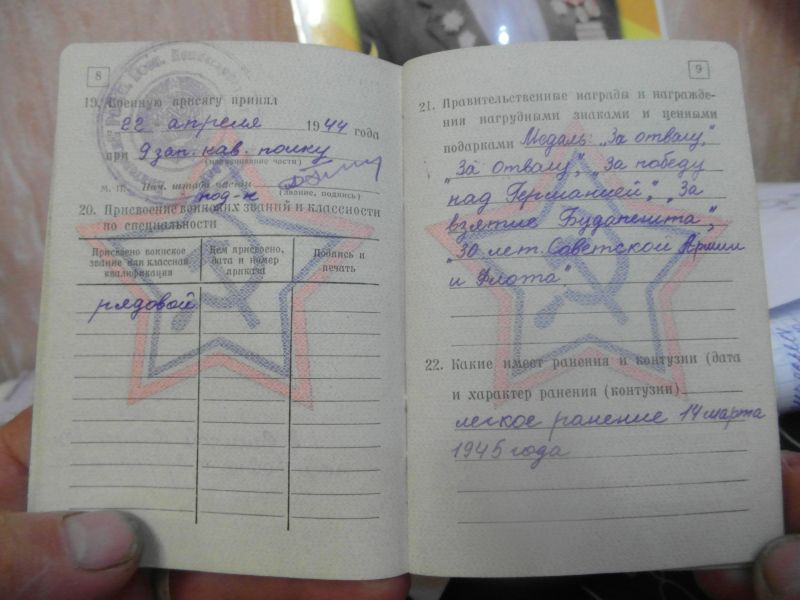 8
19. Военную присягу принял
22 апреля 1944 года
при 9 зап. кав. полку
(наименование части)
М. П. Нач. штаба части
подп-к (звание, подпись)
20. Присвоение воинских званий и классности
по специальности
Присвоено воинское
звание или классная
квалификация
Кем присвоено,
дата и номер
приказа
Подпись и
печать
рядовой
9
21. Правительственные награды и награжде-
ния нагрудными знаками и ценными
подарками Медаль „За отвагу",
„За отвагу", „За победу
над Германией", „За
взятие Будапешта",
„30 лет Советской Армии
и Флота".
22. Какие имеет ранения и контузии (дата
и характер ранения (контузии)
легкое ранение 14 марта
1945 года